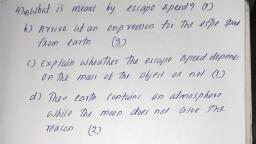 4) a) What is means by escape speed? (1)
b) Arrive at an expression for the espe speed
from earth (3)
c) Explain wheather the escape speed depends
on the mass of the object or not (1)
d) The earth contains an atmosphere
while the moon does not Give the
reason (2)